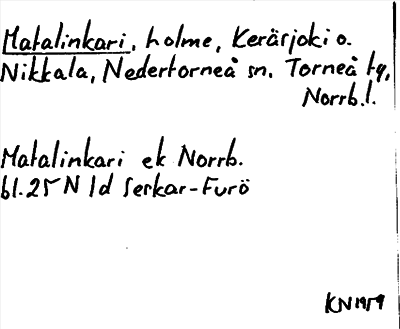 Matalinkari, holme, Keräsjoki o.
Nikkala, Nedertorneå sn. Torneå tg,
Norrb.l.
Matalinkari ek Norrb.
bl.25 N 1d Seskar-Furö
KN 1959